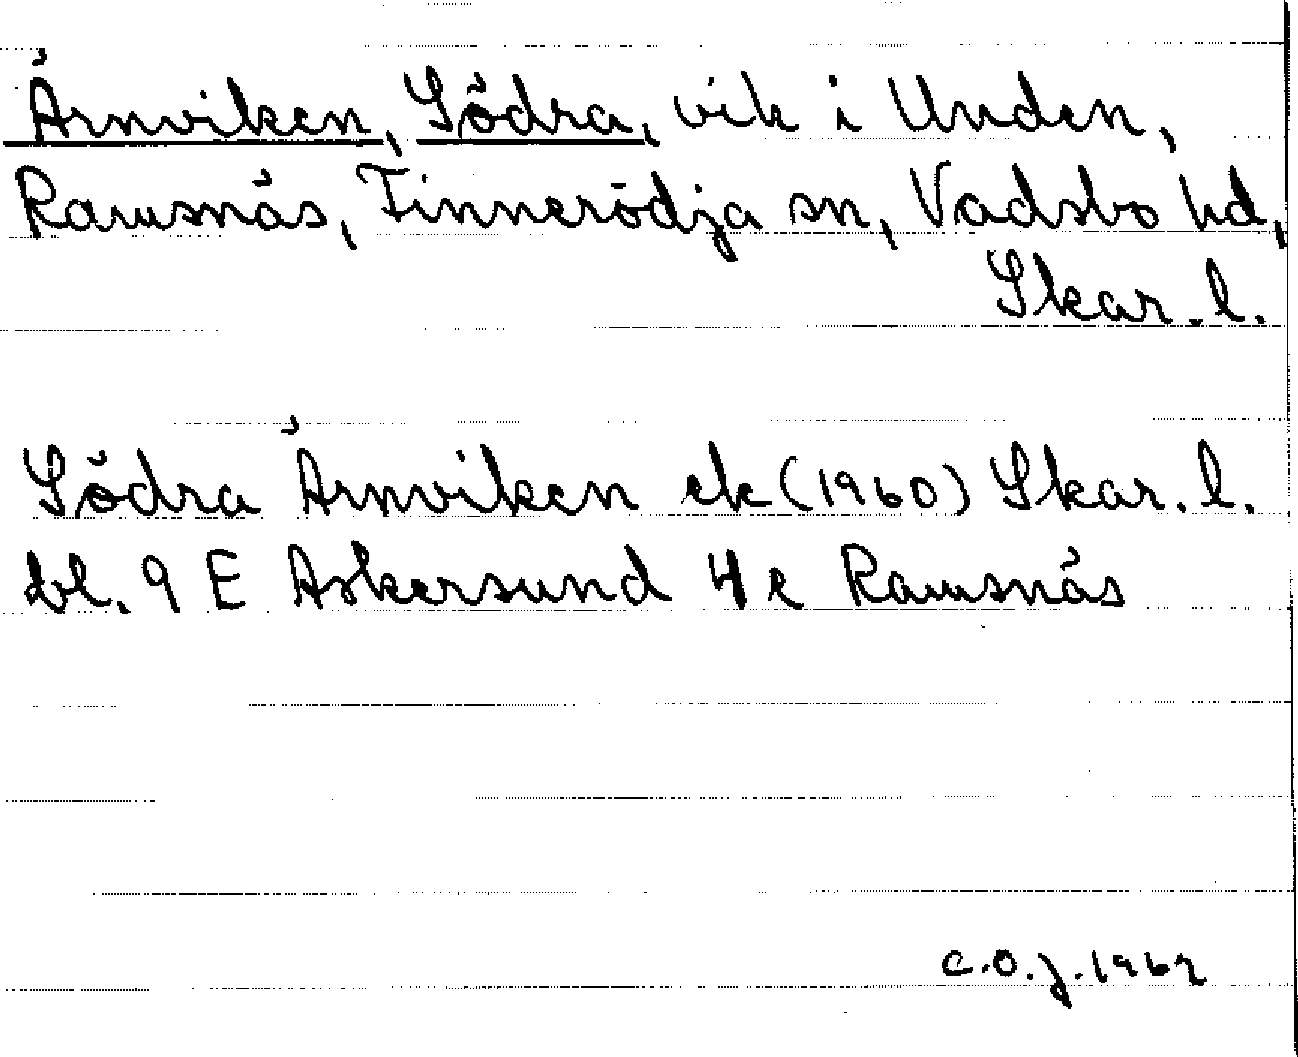 Ärnviken, Södra, vik i Unden,
Ramsnäs, Finnerödja sn, Vadsbo hd,
Skar. l.
Södra Ärnviken ek (1960) Skar. l.
bl. 9 E Askersund 4 e Ramsnäs
C.O.J. 1962